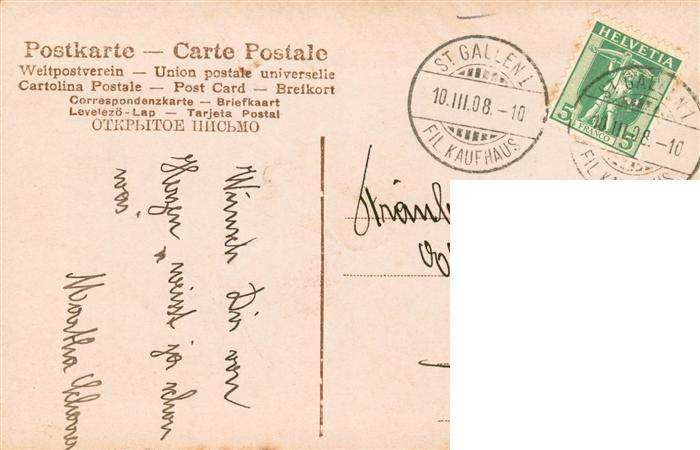 Postkarte — Carte Postale
Weltpostverein — Union postale universelle
Cartolina Postale — Post Card — Brefkort
Correspondenzkarte — Briefkaart
Levelező-Lap — Tarjeta Postal
ОТКРЫТОЕ ПИСЬМО
ST. GALLEN 1
10.III.08.-10
FIL. KAUFHAUS
HELVETIA
5 FRANCO 5
ST. GALLEN 1
10.III.08.-10
FIL. KAUFHAUS
Wünsch Dir von
Herzen
ja schon
Martha
Fräul